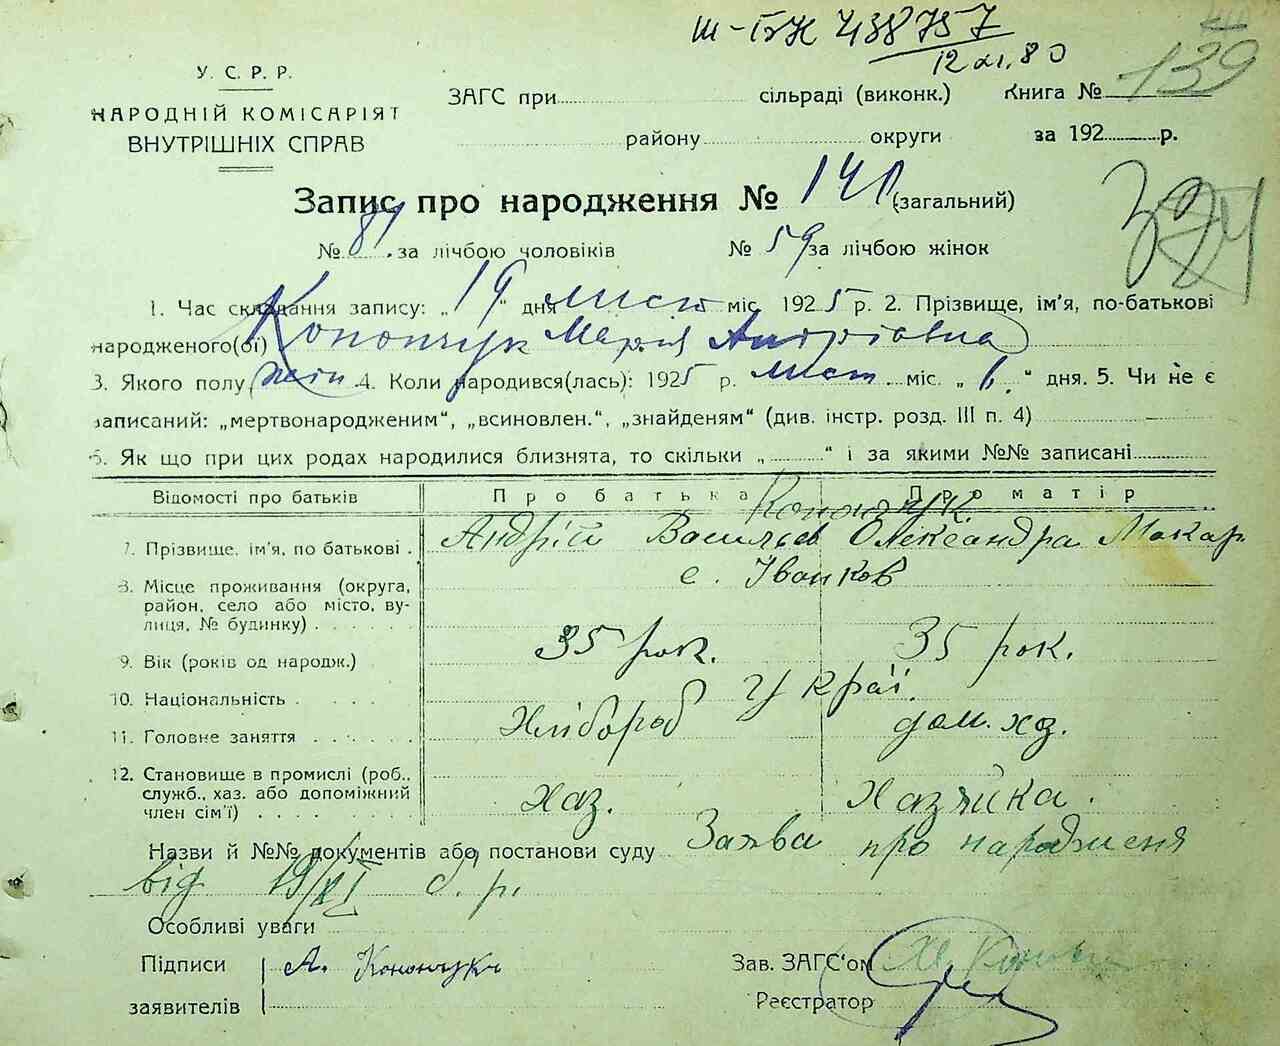 Ш-ГЮК 438757
12.XI.80
139
У. С. Р. Р.
НАРОДНІЙ КОМІСАРІЯТ
ВНУТРІШНІХ СПРАВ
ЗАГС при сільраді (виконк.) Книга №
району округи за 192 р.
Запис про народження № 140 (загальний)
324
№ 81 за лічбою чоловіків № 59 за лічбою жінок
1. Час складання запису: „19“ дня лист міс. 1925 р. 2. Прізвище, ім'я, по-батькові
народженого(ої) Конончук Марія Андріївна
3. Якого полу жін 4. Коли народився(лась): 1925 р. лист. міс. „6.“ дня. 5. Чи не є
записаний: „мертвонародженим“, „всиновлен.“, „знайденям“ (див. інстр. розд. III п. 4)
6. Як що при цих родах народилися близнята, то скільки „ “ і за якими №№ записані
Відомості про батьків Про батька Про матір
Конончук
7. Прізвище, ім'я, по батькові . Андрій Васильєв Олександра Макар
8. Місце проживання (округа, с. Іванков
район, село або місто, ву-
лиця, № будинку)
9. Вік (років од народж.) 35 рок. 35 рок.
10. Національність Украї.
11. Головне заняття Хлібороб дом. хоз.
12. Становище в промислі (роб.,
служб., хаз. або допоміжний Хаз. Хазяйка.
член сім'ї)
Назви й №№ документів або постанови суду Заява про народженя
від 19/XI б. р.
Особливі уваги
Підписи А. Конончук Зав. ЗАГС'ом
заявителів Реєстратор